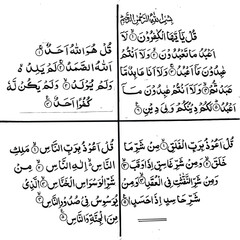 بِسْمِ اللهِ الرَّحْمٰنِ الرَّحِيْمِ
قُلْ يٰٓاَيُّهَا الْكٰفِرُوْنَ ۝ لَآ
اَعْبُدُ مَا تَعْبُدُوْنَ ۝ وَلَآ اَنْتُمْ
عٰبِدُوْنَ مَآ اَعْبُدُ ۝ وَلَآ اَنَا عَابِدٌ مَّا
عَبَدْتُّمْ ۝ وَلَآ اَنْتُمْ عٰبِدُوْنَ مَآ
اَعْبُدُ ۝ لَكُمْ دِيْنُكُمْ وَلِيَ دِيْنِ ۝
قُلْ هُوَ اللهُ اَحَدٌ ۝
اَللهُ الصَّمَدُ ۝ لَمْ يَلِدْ ۙ
وَلَمْ يُوْلَدْ ۝ وَلَمْ يَكُنْ لَّهٗ
كُفُوًا اَحَدٌ ۝
قُلْ اَعُوْذُ بِرَبِّ الْفَلَقِ ۝ مِنْ شَرِّ مَا
خَلَقَ ۝ وَمِنْ شَرِّ غَاسِقٍ اِذَا وَقَبَ ۝
وَمِنْ شَرِّ النَّفّٰثٰتِ فِي الْعُقَدِ ۝ وَمِنْ
شَرِّ حَاسِدٍ اِذَا حَسَدَ ۝
قُلْ اَعُوْذُ بِرَبِّ النَّاسِ ۝ مَلِكِ
النَّاسِ ۝ اِلٰهِ النَّاسِ ۝ مِنْ
شَرِّ الْوَسْوَاسِ الْخَنَّاسِ ۝ الَّذِيْ
يُوَسْوِسُ فِيْ صُدُوْرِ النَّاسِ ۝
مِنَ الْجِنَّةِ وَالنَّاسِ ۝